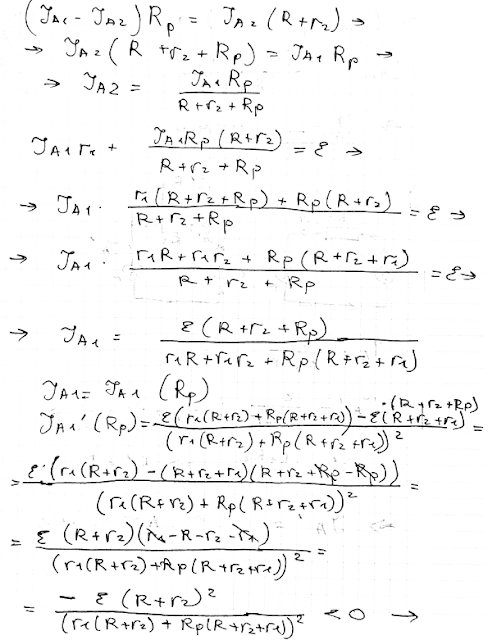 (J_A1 - J_A2) R_p = J_A2 (R + r_2) →
→ J_A2 (R + r_2 + R_p) = J_A1 R_p →
→ J_A2 = J_A1 R_p / (R + r_2 + R_p)
J_A1 r_1 + J_A1 R_p (R + r_2) / (R + r_2 + R_p) = ε →
→ J_A1 · (r_1 (R + r_2 + R_p) + R_p (R + r_2)) / (R + r_2 + R_p) = ε →
→ J_A1 · (r_1 R + r_1 r_2 + R_p (R + r_2 + r_1)) / (R + r_2 + R_p) = ε →
→ J_A1 = ε (R + r_2 + R_p) / (r_1 R + r_1 r_2 + R_p (R + r_2 + r_1))
J_A1 = J_A1 (R_p)
J_A1' (R_p) = (ε (r_1 (R + r_2) + R_p (R + r_2 + r_1)) - ε (R + r_2 + r_1) · (R + r_2 + R_p)) / (r_1 (R + r_2) + R_p (R + r_2 + r_1))^2 =
= ε · (r_1 (R + r_2) - (R + r_2 + r_1)(R + r_2 + R_p - R_p)) / (r_1 (R + r_2) + R_p (R + r_2 + r_1))^2 =
= ε (R + r_2)(r_1 - R - r_2 - r_1) / (r_1 (R + r_2) + R_p (R + r_2 + r_1))^2 =
= - ε (R + r_2)^2 / (r_1 (R + r_2) + R_p (R + r_2 + r_1))^2 < 0 →